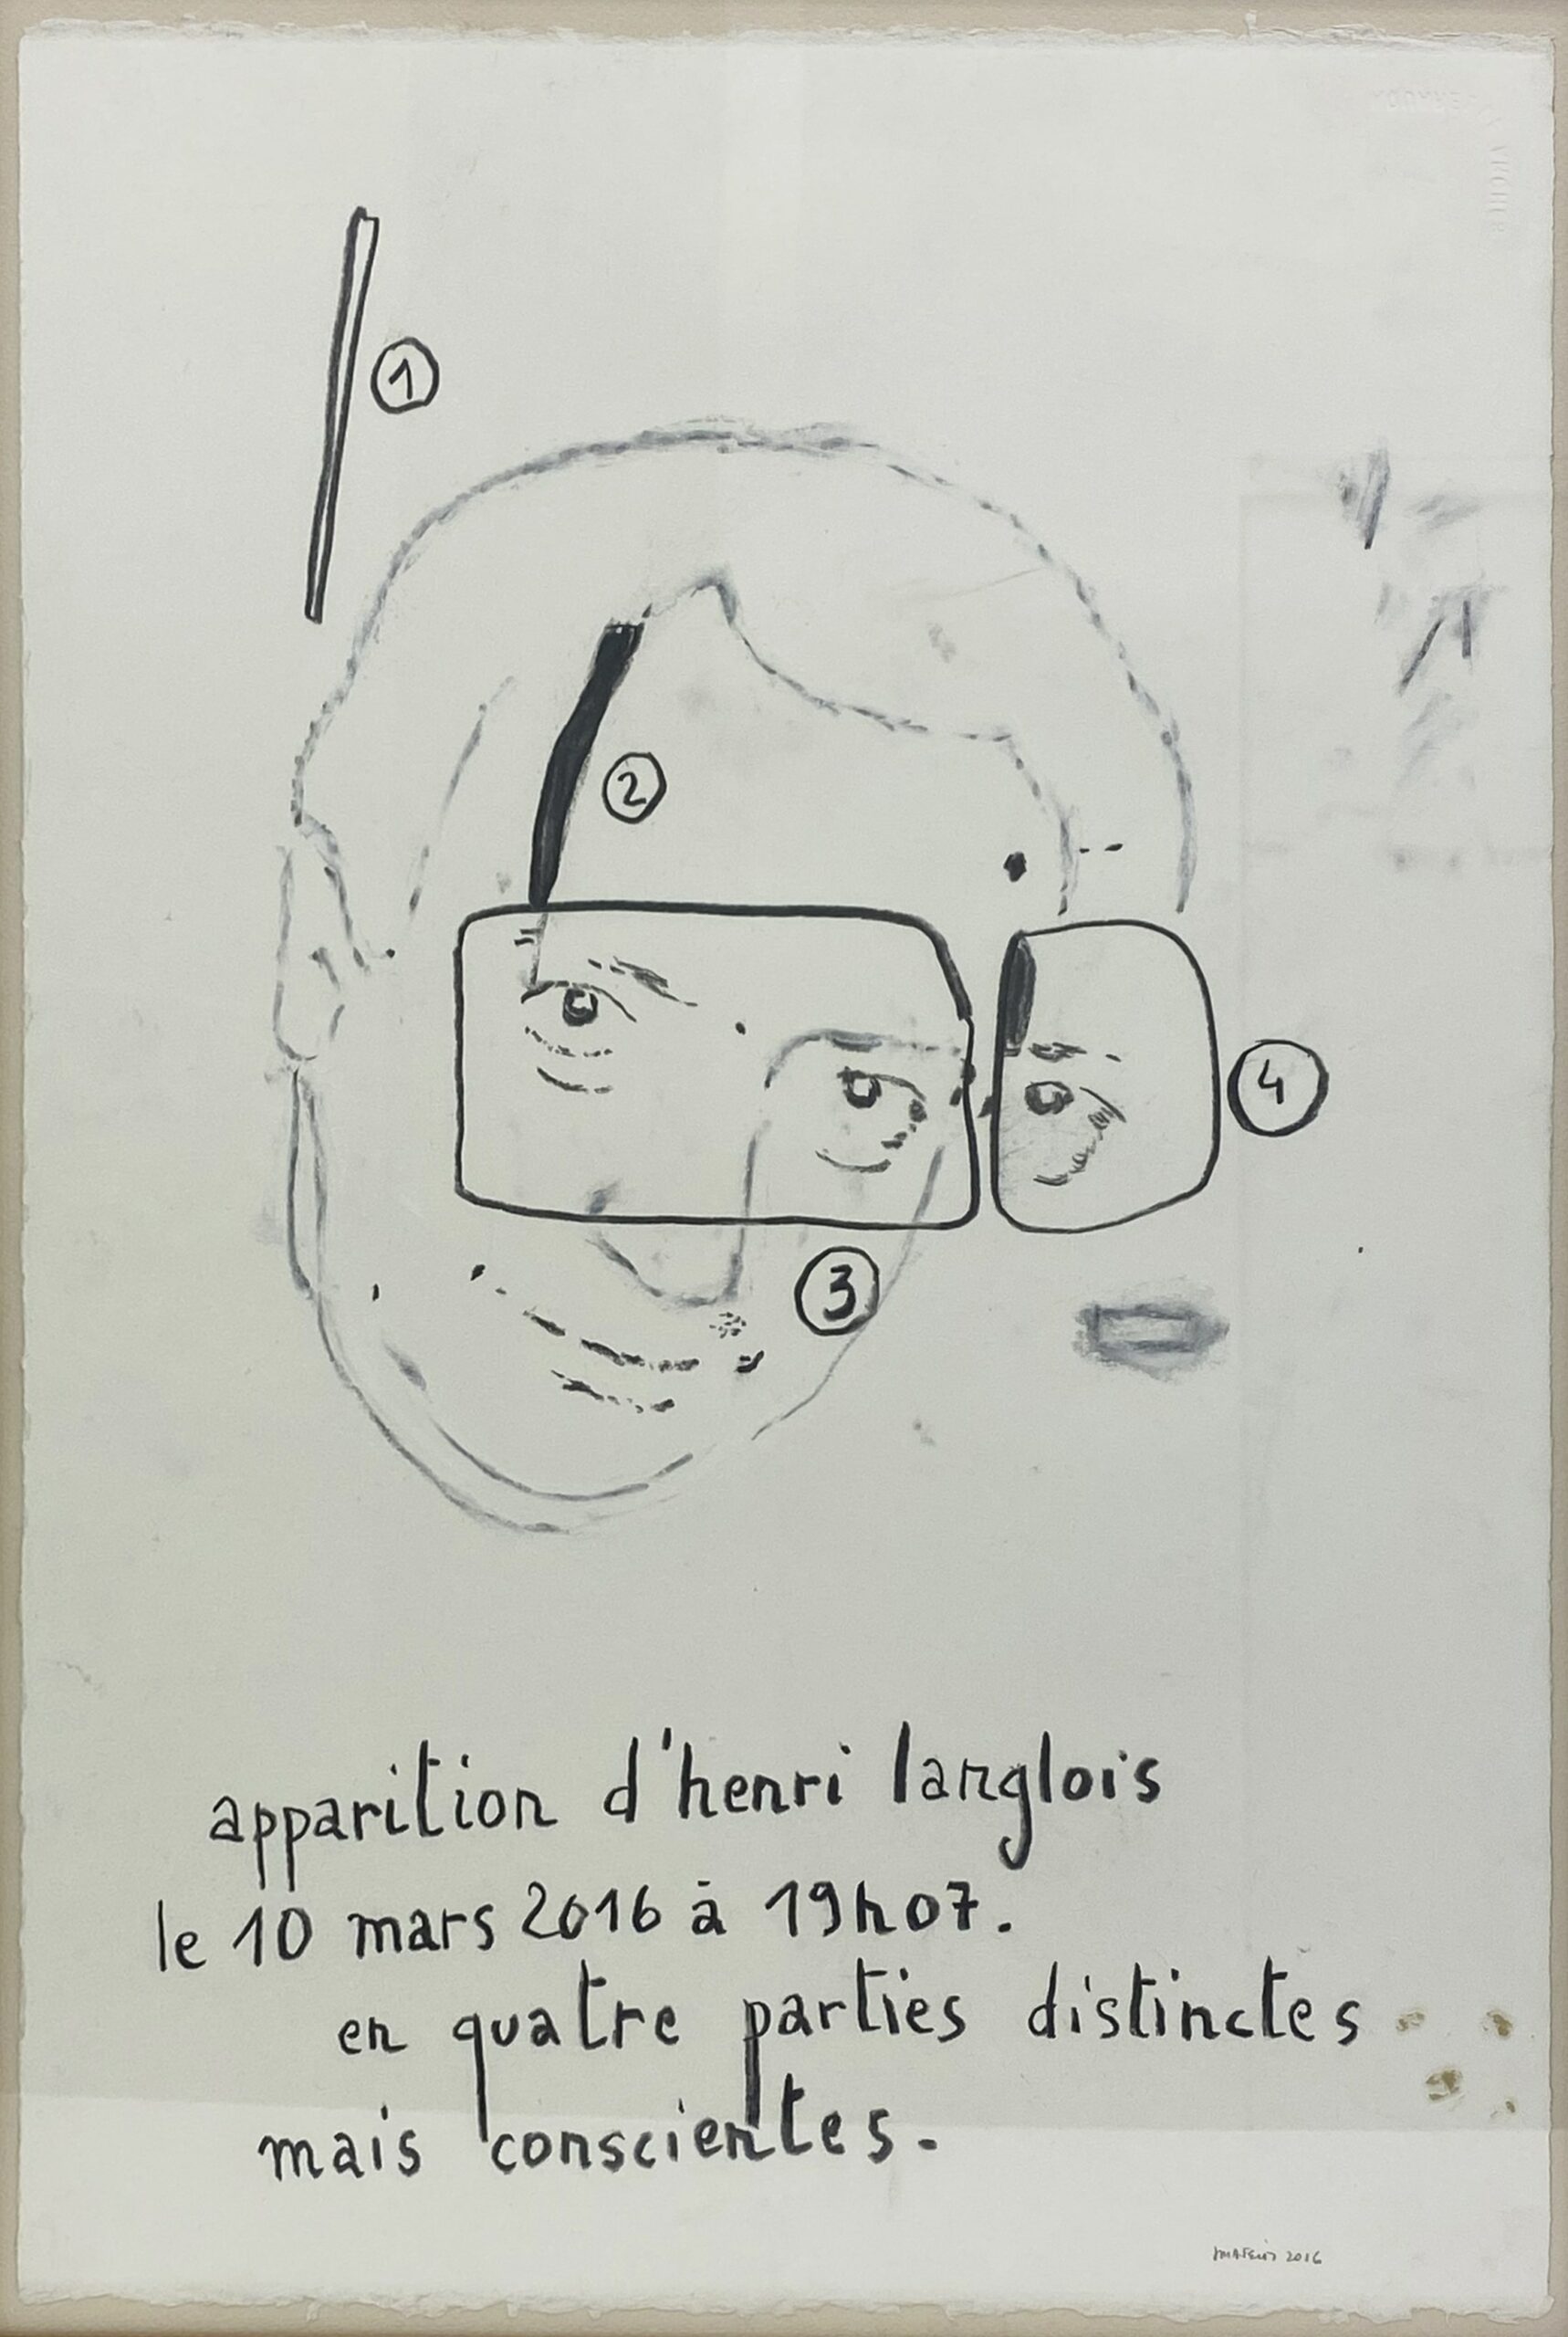 1
2
4
3
apparition d'henri langlois
le 10 mars 2016 à 19h07.
en quatre parties distinctes
mais conscientes.
2016